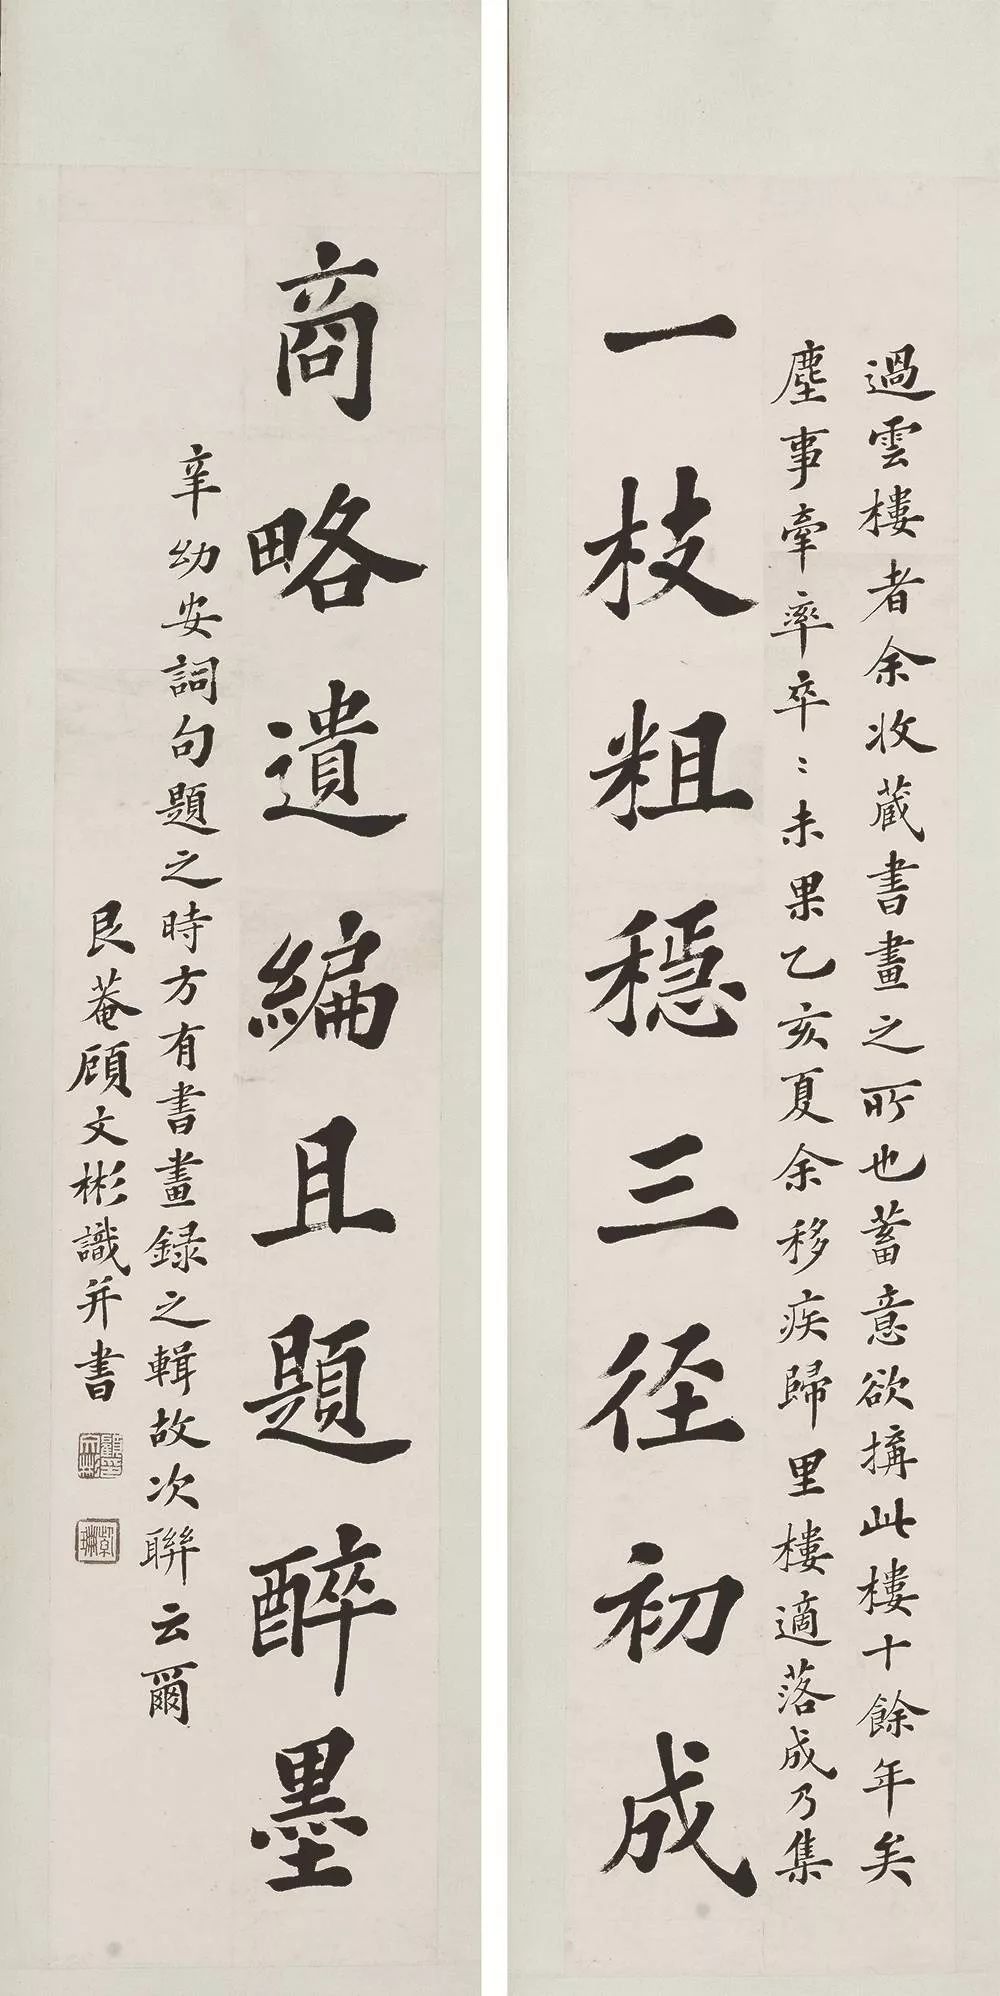 過雲樓者余收藏書畫之所也蓄意欲搆此樓十餘年矣
塵事牽率卒〻未果乙亥夏余移疾歸里樓適落成乃集
一枝粗穩三径初成
商略遺編且題醉墨
辛幼安詞句題之時方有書畫録之輯故次聯云爾
艮菴顧文彬識并書
顧印文彬
紫珊